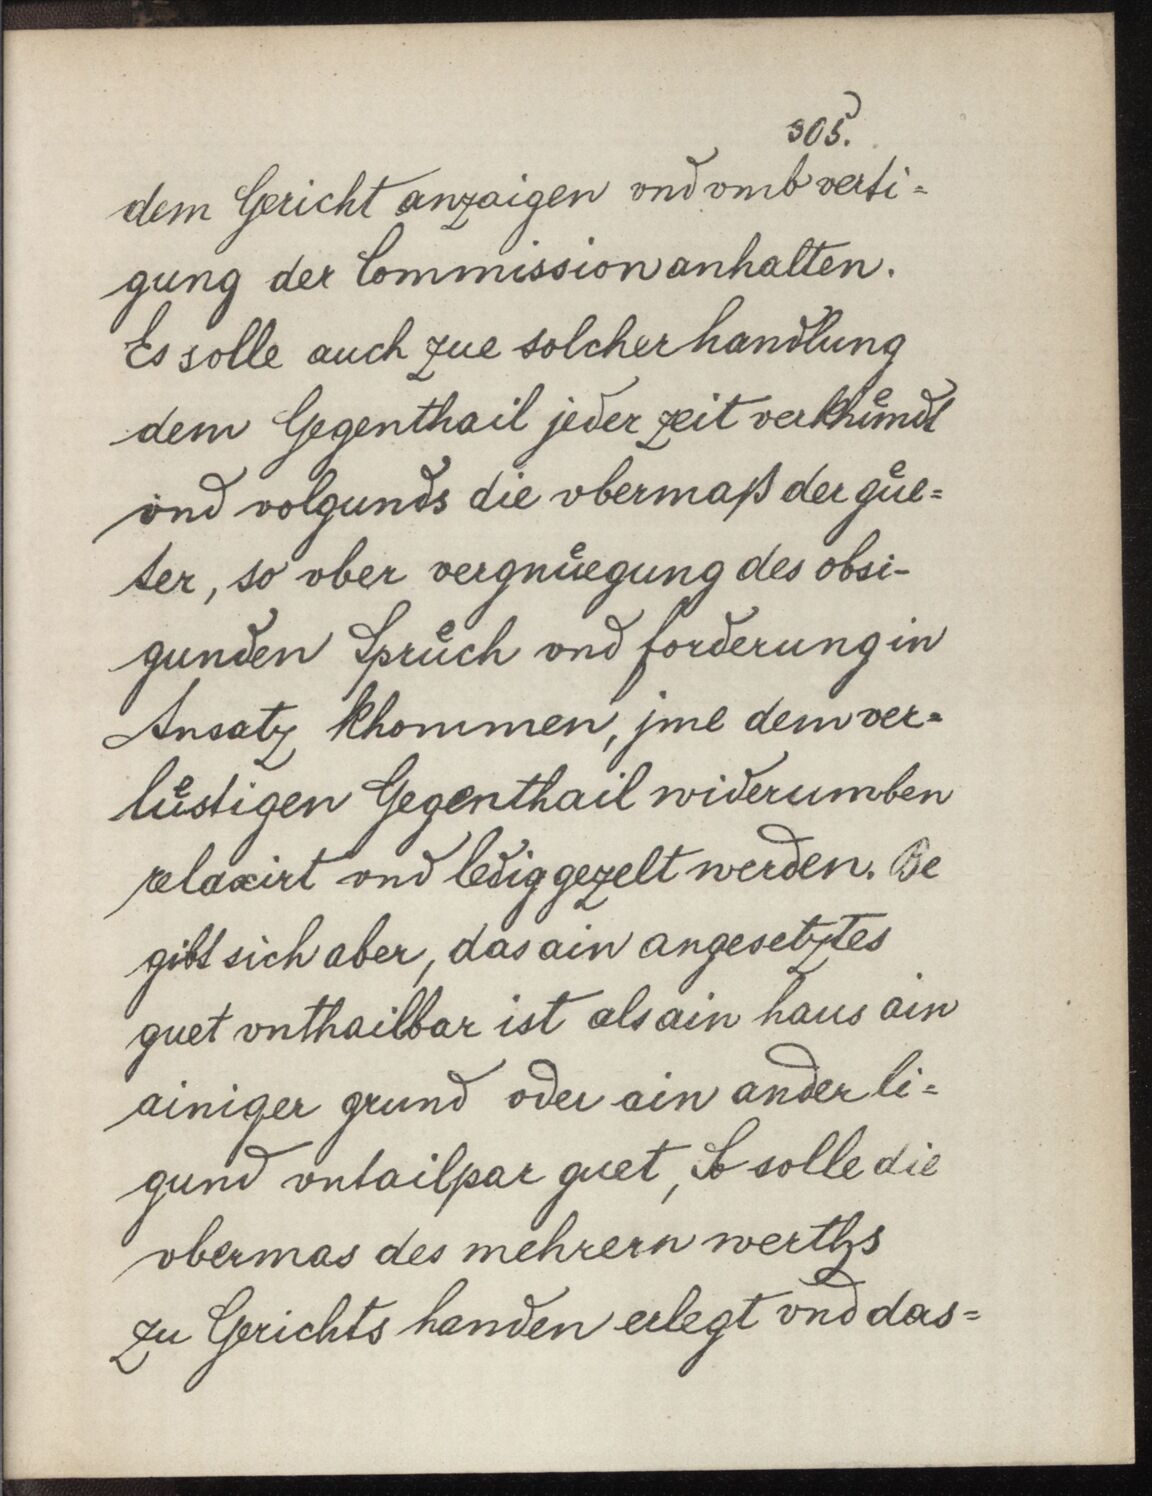 305.
dem Gericht anzaigen vnd vmb verti=
gung der Commission anhalten.
Es solle auch zue solcher handlung
dem Gegenthail jeder zeit verkhündt
vnd volgunds die vbermaß der güe=
ter, so vber vergnüegung des obsi-
gunden Sprüch vnd forderung in
Ansatz khommen, jme dem ver=
lüstigen Gegenthail widerumben
relaxirt vnd ledig gezelt werden. Be
gibt sich aber, das ain angesetztes
guet vnthailbar ist als ain haus ain
ainiger grund oder ain ander li=
gund vntailpar guet, So solle die
vbermas des mehrern werths
zu Gerichts handen erlegt vnd das=